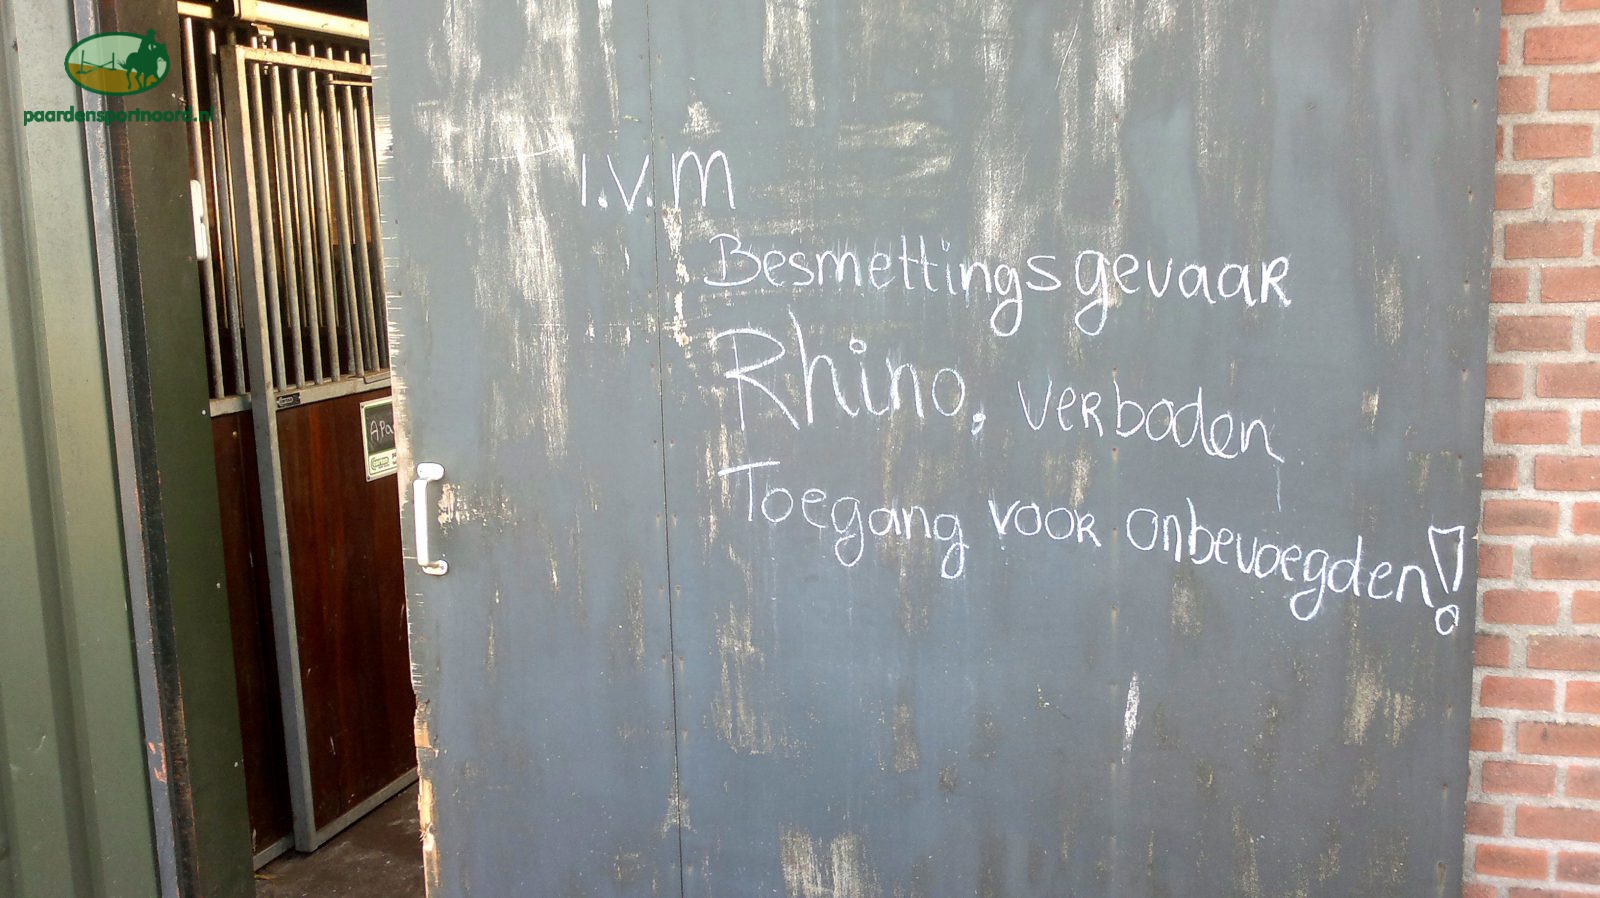 paardensportnoord.nl
I.V.M
Besmettingsgevaar
Rhino. verboden
Toegang voor onbevoegden!